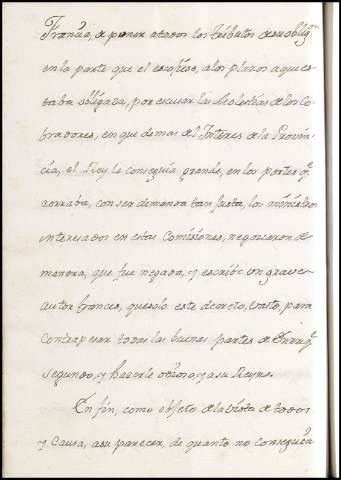 Francia, a poner a todos los tributos de su oblig.on
en la parte que el escojiese, a los plazos a que es
taba obligada, por escusar las Molestias de los Co
bradores, en que demas del Interes de la Provin
cia, el Rey le conseguia grande, en los portes q.
aorraba, con ser demanda tan justa, los ministros
interesados en estas Comisiones, negociaron de
manera, que fue negada, y escribe un grave
autor frances, que solo este decreto, basto, para
contrapesar todas las buenas partes de Enriq.
segundo, y hacerle odioso, y a su Reyno.
En fin, como objeto de la vista de todos
y Causa, a su parecer, de quanto no conseguia